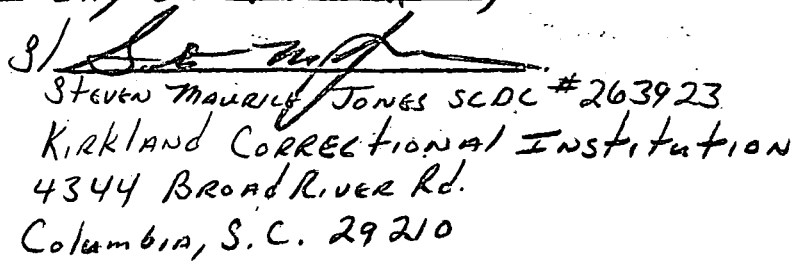 S/
Steven Maurice Jones SCDC #263923
Kirkland Correctional Institution
4344 Broad River Rd.
Columbia, S.C. 29210